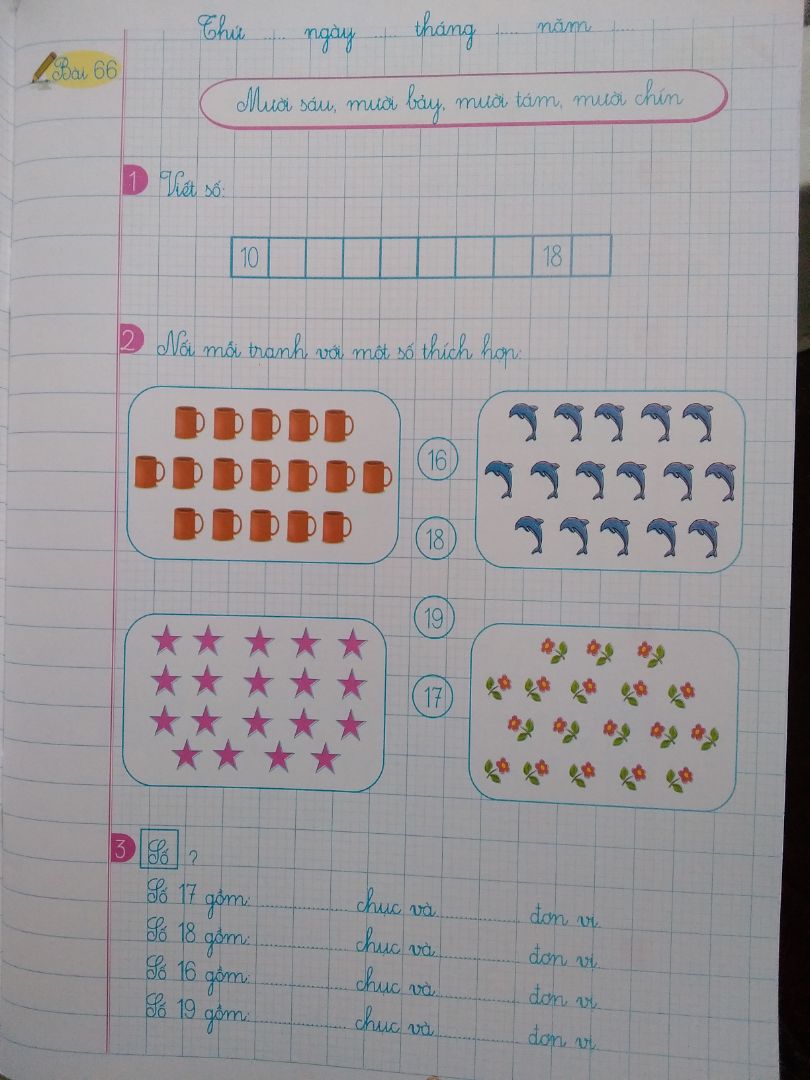 Thứ ..... ngày ..... tháng ..... năm .....
Bài 66
Mười sáu, mười bảy, mười tám, mười chín
1 Viết số:
10 18
2 Nối mỗi tranh với một số thích hợp:
16
18
19
17
3 Số ?
Số 17 gồm: .................. chục và ............... đơn vị.
Số 18 gồm: .................. chục và ............... đơn vị.
Số 16 gồm: .................. chục và ............... đơn vị.
Số 19 gồm: .................. chục và ............... đơn vị.